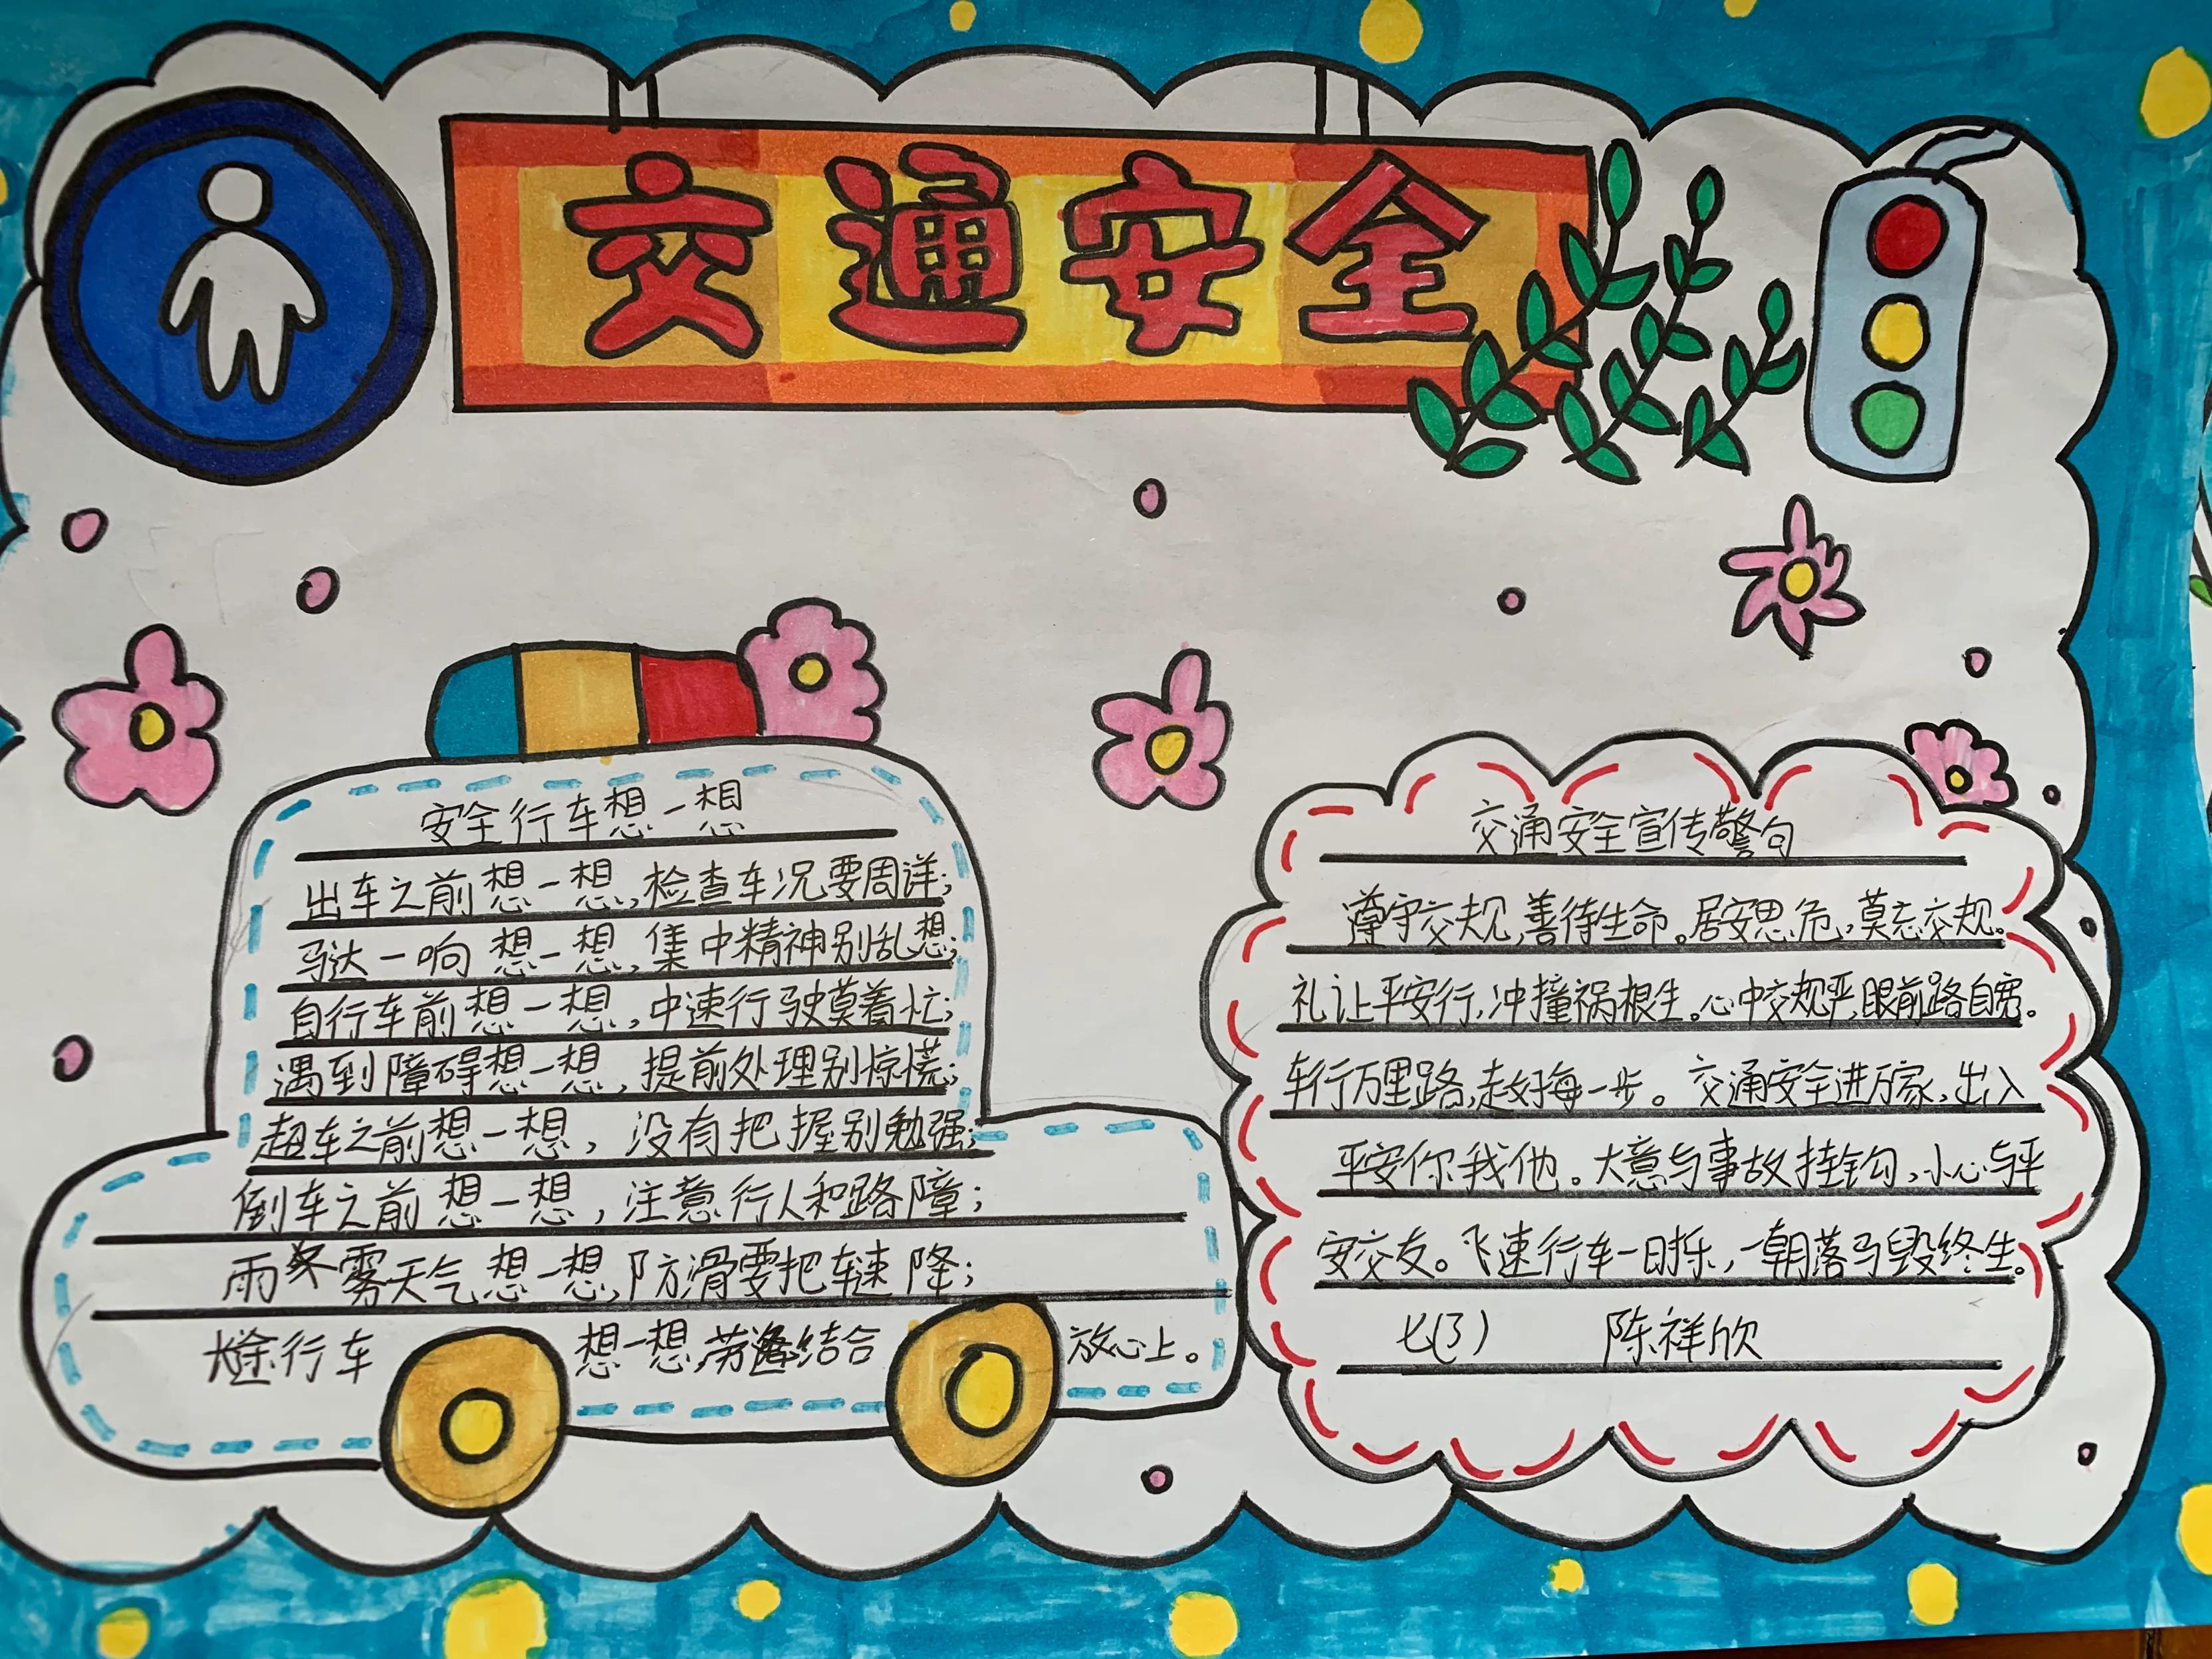 交通安全
安全行车想一想
出车之前想一想,检查车况要周详;
马达一响 想一想,集中精神别乱想;
自行车前想一想,中速行驶莫着忙;
遇到障碍想一想,提前处理别惊慌;
超车之前想一想,没有把握别勉强;
倒车之前想一想,注意行人和路障;
雨雾天气想一想,防滑要把车速降;
长途行车 想一想,劳逸结合 放心上。
交通安全宣传警句
遵守交规,善待生命。居安思危,莫忘交规。
礼让平安行,冲撞祸根生。心中交规严,眼前路自宽。
车行万里路,走好每一步。交通安全进万家,出入
平安你我他。大意与事故挂钩,小心与平
安交友。飞速行车一时乐,一朝落马毁终生。
七(3) 陈祥欣